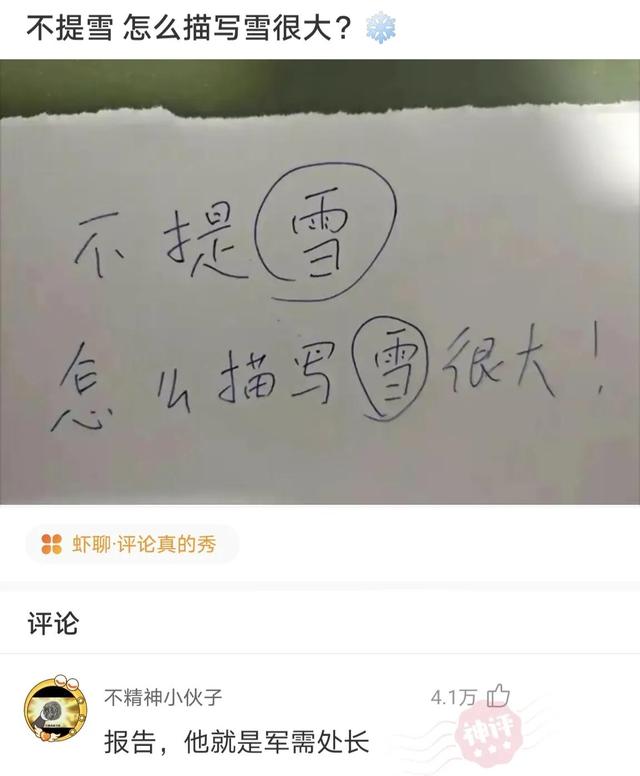 不提雪 怎么描写雪很大？
不提雪
怎么描写雪很大！
虾聊·评论真的秀
评论
不精神小伙子
4.1万
神评
报告，他就是军需处长